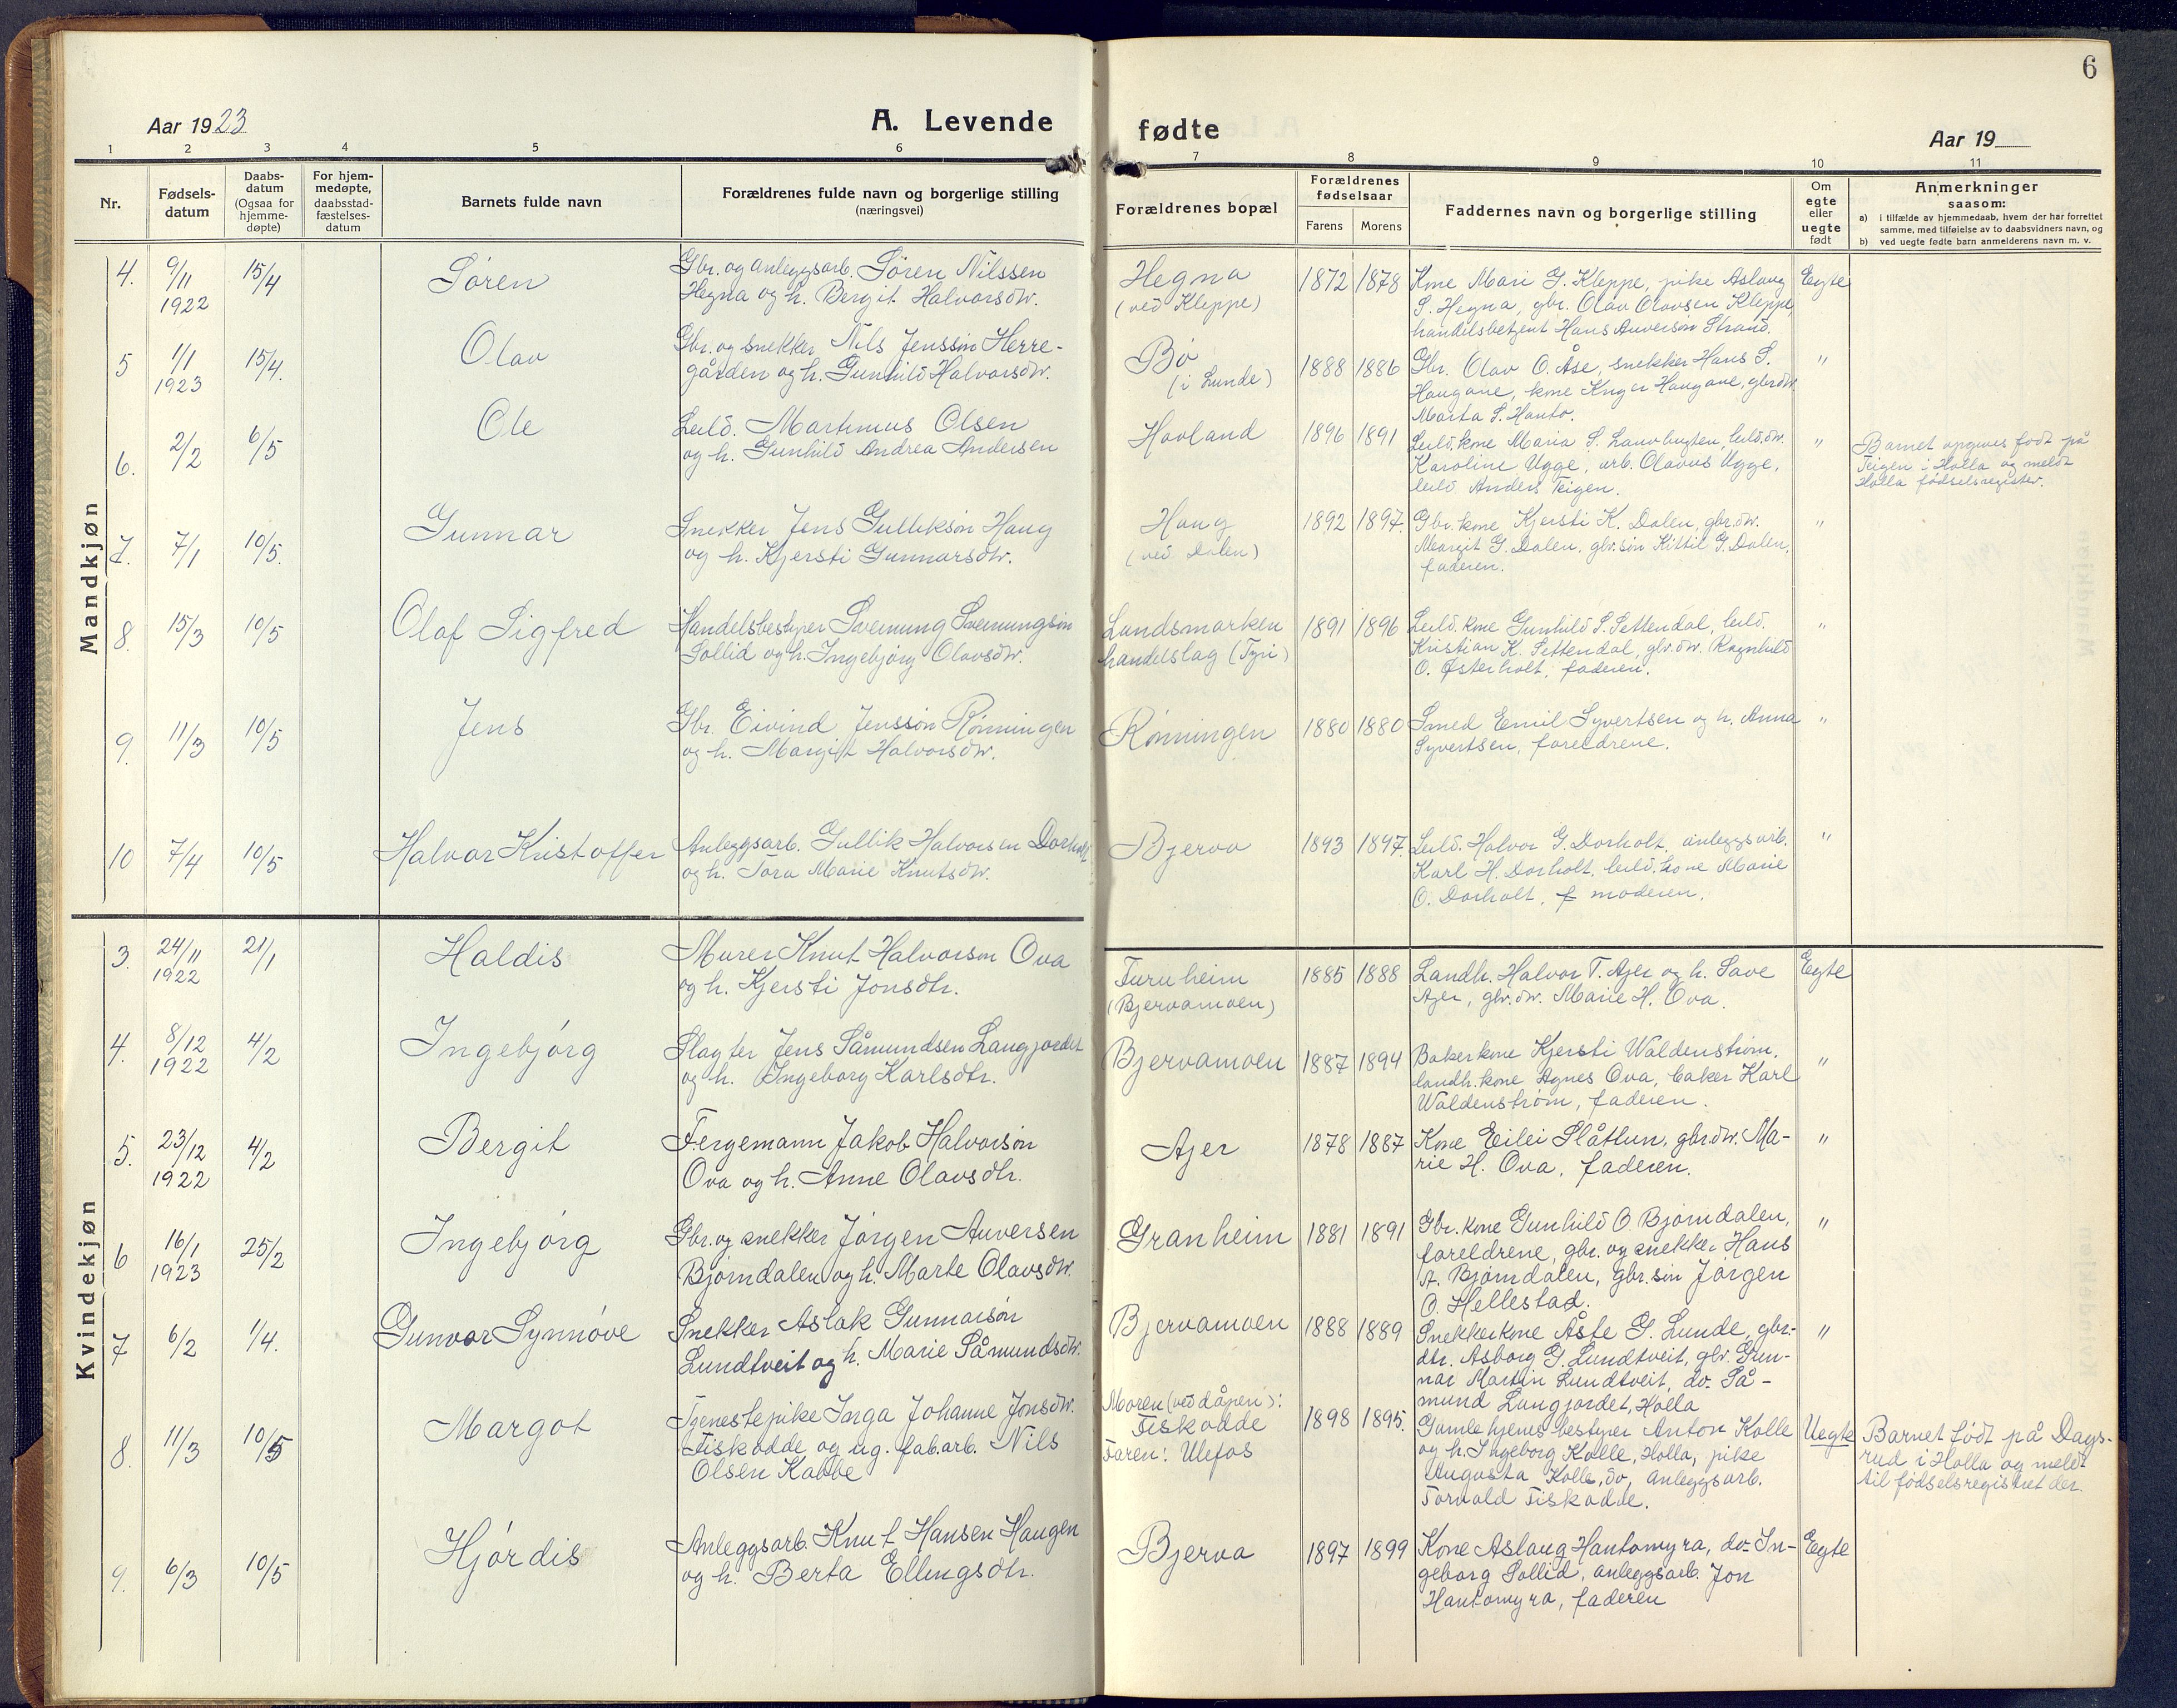 6
Aar 1923
A. Levende
fødte
Aar 19
1 2 3 4 5 6 7 8 9 10 11
Nr.
Fødsels-
datum
Daabs-
datum
(Ogsaa for
hjemme-
døpte)
For hjem-
medøpte,
daabsstad-
fæstelses-
datum
Barnets fulde navn
Forældrenes fulde navn og borgerlige stilling
(næringsvei)
Forældrenes bopæl
Forældrenes
fødselsaar
Farens Morens
Faddernes navn og borgerlige stilling
Om
egte
eller
uegte
født
Anmerkninger
saasom:
a) i tilfælde av hjemmedaab, hvem der har forrettet
samme, med tilføielse av to daabsvidners navn, og
b) ved uegte fødte barn anmelderens navn m. v.
Mandkjøn
4. 9/11 1922 15/4 Søren
Gbr. og anleggsarb. Søren Nilssen
Hegna og h. Bergit Halvorsdtr.
Hegna
(ved Kleppe)
1872 1878
Kone Mari G. Kleppe, pike Aslaug
S. Hegna, gbr. Olav Olavsen Kleppe,
handelsbetjent Hans Auverson Strand.
Egte
5 1/1 1923 15/4. Olav
Gbr. og snekker Nils Jensson Herre-
gården og h. Gunhild Halvorsdtr.
Bø
(i Lunde)
1888 1886
Gbr. Olav O. Åse, snekker Hans S.
Haugane, kone Haugane, gbrdtr.
Marta S. Hanto.
"
6. 2/2 6/5 Ole
Leild. Martinius Olsen
og h. Gunhild Andrea Andersen
Hovland
1896 1891
Leild.kone Maria S. leild.dtr.
Karoline Ugge, arb. Olavus Ugge,
leild Anders Teigen.
"
Barnet opgives født på
Teigen i Holla og meldt
Holla fødselsregister.
7. 7/1 10/5. Gunnar
Snekker Jens Gulliksøn Haug
og h. Kjersti Gunnarsdtr.
Haug
(ved Dalen)
1892 1897.
Gbr.kone Kjersti K. Dalen, gbr.dtr.
Margit G. Dalen, gbr.søn Kittil G. Dalen,
faderen.
"
8. 15/3 10/5 Olaf Sigfred
Handelsbestyrer Sveinung Sveinungsøn
Sollid og h. Ingebjørg Olavsdtr.
Landsmarken
handelslag (Tyri)
1891 1896
Leild. kone Gunhild S. Settendal, leild.
Kristian K. Settendal, gbr.dtr. Ragnhild
O. Østerholt, faderen.
"
9. 11/3 10/5 Jens
Gbr. Eivind Jensson Rønningen
og h. Margit Halvorsdtr.
Rønningen
1880 1880
Smed Emil Syvertsen og h. Anna
Syvertsen, foreldrene.
"
10 7/4 10/5 Halvor Kristoffer
Anleggsarb. Gullik Halvorsen Dorholt
og h. Tora Marie Knutsdtr.
Bjerva
1893 1897.
Leild. Halvor G. Dorholt, anleggsarb.
Karl H. Dorholt, leild.kone Marie
O. Dorholt, f moderen.
"
Kvindekjøn
3. 24/11 1922 21/1 Haldis
Murer Knut Halvorson Ova
og h. Kjersti Jonsdtr.
Furuheim
(Bjervamoen)
1885 1888
Landh. Halvor T. Ajer og h. Save
Ajer, gbr.dtr. Marie H. Ova.
Egte
4. 8/12 1922 4/2 Ingebjørg
Slagter Jens Såmundsen Langjordet
og h. Ingeborg Karlsdtr.
Bjervamoen
1887 1894
Bakerkone Kjersti Waldenstrøm,
landh.kone Agnes Ova, baker Karl
Waldenstrøm, faderen.
"
5. 23/12 1922 4/2 Bergit
Fergemann Jakob Halvorsøn
Ova og h. Anne Olavsdtr.
Ajer
1878 1887
Kone Eilei Slåttun, gbr.dtr. Ma-
rie H. Ova, faderen.
"
6 16/1 1923 25/2 Ingebjørg
Gbr. og snekker Jørgen Auversen
Bjørndalen og h. Marte Olavsdtr.
Granheim
1881 1891
Gbr. kone Gunhild O. Bjørndalen,
foreldrene, gbr. og snekker Hans
A. Bjørndalen, gbr.søn Jørgen
O. Hellestad.
"
7 6/2 1/4. Gunvor Synnøve
Snekker Aslak Gunnarsøn
Lundtveit og h. Marie Såmundsdtr.
Bjervamoen
1888 1889
Snekkerkone Åste G. Lunde, gbr-
dtr. Asborg G. Lundtveit, gbr. Gun-
nar Martin Lundtveit, do. Så-
mund Langjordet, Holla
"
8. 11/3 10/5 Margot
Tjenestepike Inga Johanne Jonsdtr.
Fiskodde og ug. fab.arb. Nils
Olsen Kabbe
Moren (ved dåpen):
Fiskodde
Faren: Ulefos
1898 1895.
Gamlehjems bestyrer Anton Kolle
og h. Ingeborg Kolle, Holla, pike
Augusta Kolle, do, anleggsarb.
Torvald Fiskodde.
Uegte
Barnet født på Dags-
rud i Holla og meldt
til fødselsregistret der.
9. 6/3 10/5 Hjørdis
Anleggsarb. Knut Hansen Haugen
og h. Berta Ellingsdtr.
Bjerva
1897 1899
Kone Aslaug Hantomyra, do. In-
geborg Sollid, anleggsarb. Jon
Hantomyra, faderen
Egte